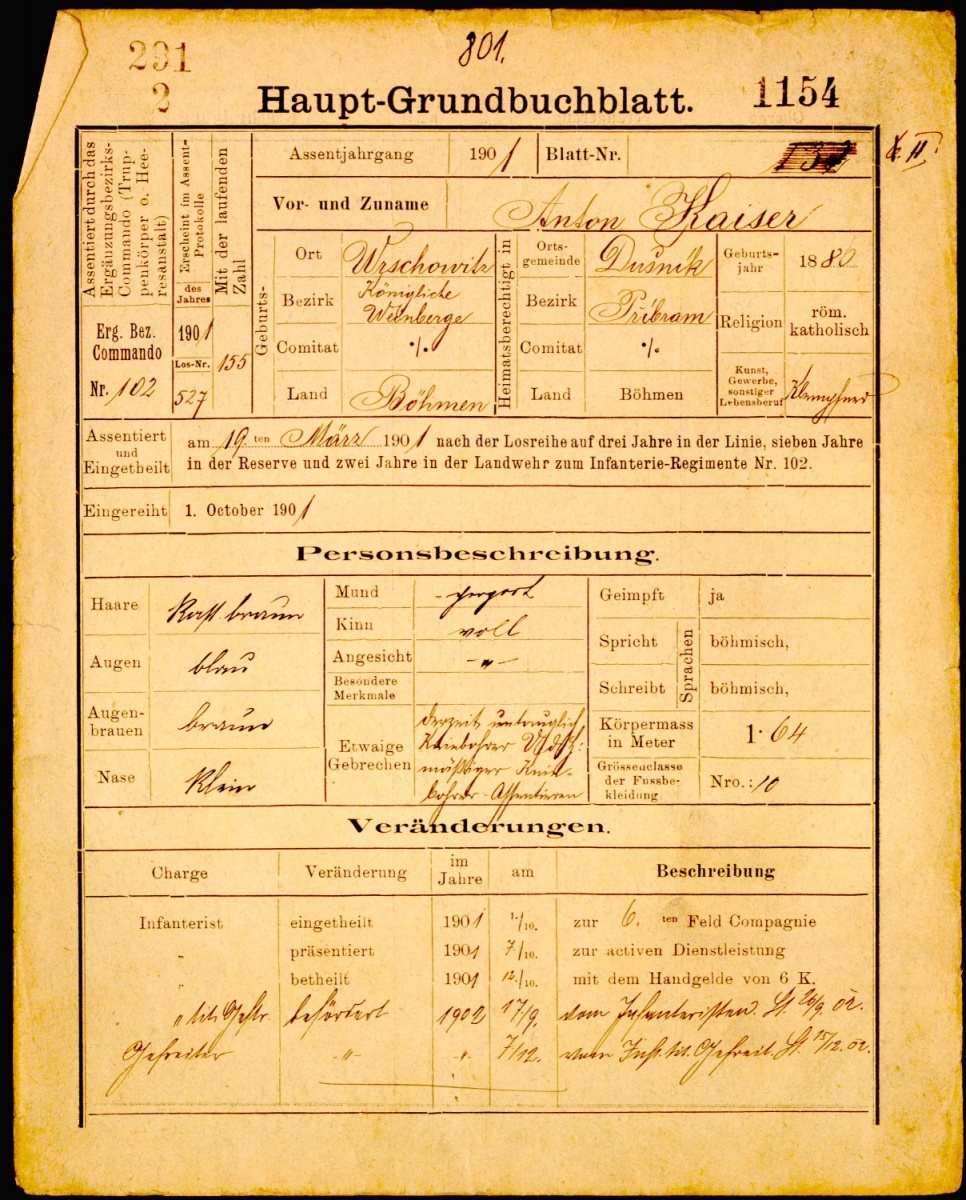 291
801.
2
Haupt-Grundbuchblatt.
1154
Assentiert durch das Ergänzungsbezirks-Commando (Truppenkörper o. Heeresanstalt)
Erscheint im Assent-Protokolle
des Jahres
Mit der laufenden Zahl
Erg. Bez.
Commando
Nr. 102
1901
Los-Nr.
527
155
Assentjahrgang
1901
Blatt-Nr.
II
Vor- und Zuname
Anton Kaiser
Geburts-
Ort
Wrschowitz
Bezirk
Königliche
Weinberge
Comitat
·/·
Land
Böhmen
Heimatsberechtigt in
Orts-
gemeinde
Dušnik
Bezirk
Přibram
Comitat
·/·
Land
Böhmen
Geburts-
jahr
1880
Religion
röm.
katholisch
Kunst,
Gewerbe,
sonstiger
Lebensberuf
Klempfner
Assentiert
und
Eingetheilt
am 19. ten März 1901 nach der Losreihe auf drei Jahre in der Linie, sieben Jahre
in der Reserve und zwei Jahre in der Landwehr zum Infanterie-Regimente Nr. 102.
Eingereiht
1. October 1901
Personsbeschreibung.
Haare
braun
Augen
blau
Augen-
brauen
braun
Nase
klein
Mund
Kinn
voll
Angesicht
-„-
Besondere
Merkmale
Etwaige
Gebrechen
derzeit untauglich
Kniebohrer
mäßiger Knie-
bohrer Assentieren
Geimpft
ja
Sprachen
Spricht
böhmisch,
Schreibt
böhmisch,
Körpermass
in Meter
1·64
Grössenclasse
der Fussbe-
kleidung
Nro.: 10
Veränderungen.
Charge
Veränderung
im
Jahre
am
Beschreibung
Infanterist eingetheilt 1901 1./10. zur 6. ten Feld Compagnie
„ präsentiert 1901 7./10. zur activen Dienstleistung
„ betheilt 1901 12./10. mit dem Handgelde von 6 K.
„ tit. Gefr. befördert 1902 17/9. vom Infanteristen. St. 26/9. 02.
Gefreiter -„- „ 7/12. vom Inft. tit. Gefreit. St. 15/12. 02.